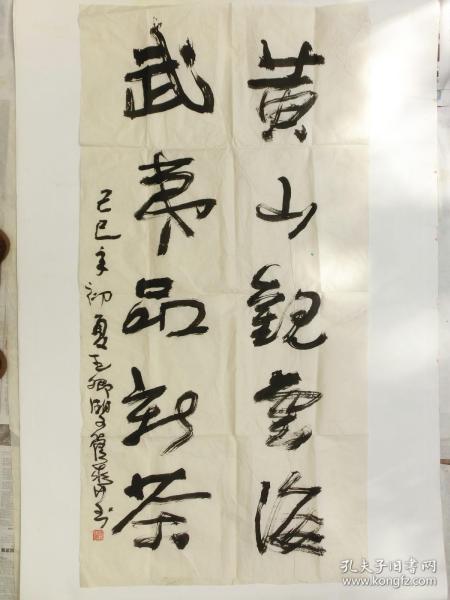 黄山觀雲海
武夷品新茶
己巳年初夏
孔夫子旧书网
www.kongfz.com